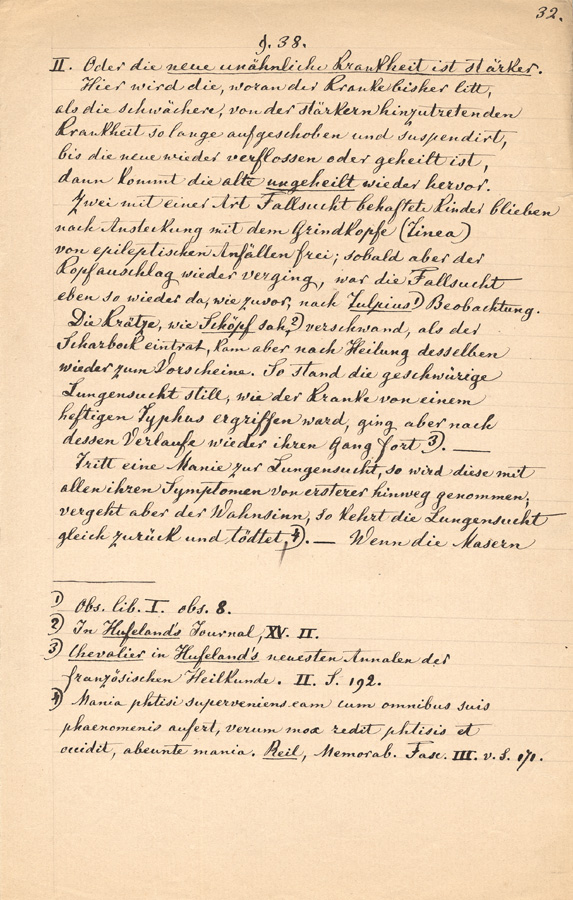 32.
§. 38.
II. Oder die neue unähnliche Krankheit ist stärker.
Hier wird die, woran der Kranke bisher litt,
als die schwächere, von der stärkern hinzutretenden
Krankheit so lange aufgeschoben und suspendirt,
bis die neue wieder verflossen oder geheilt ist,
dann kommt die alte ungeheilt wieder hervor.
Zwei mit einer Art Fallsucht behaftete Kinder blieben
nach Ansteckung mit dem Grindkopfe (Tinea)
von epileptischen Anfällen frei; sobald aber der
Kopfauschlag wieder verging, war die Fallsucht
eben so wieder da, wie zuvor, nach Tulpius 1) Beobachtung.
Die Krätze, wie Schöpf sah, 2) verschwand, als der
Scharbock eintrat, kam aber nach Heilung desselben
wieder zum Vorscheine. So stand die geschwürige
Lungensucht still, wie der Kranke von einem
heftigen Typhus ergriffen ward, ging aber nach
dessen Verlaufe wieder ihren Gang fort 3). —
Tritt eine Manie zur Lungensucht, so wird diese mit
allen ihren Symptomen von ersterer hinweg genommen;
vergeht aber der Wahnsinn, so kehrt die Lungensucht
gleich zurück und tödtet, 4). — Wenn die Masern
1) Obs. lib. I. obs. 8.
2) In Hufeland's Journal, XV. II.
3) Chevalier in Hufeland's neuesten Annalen der
französischen Heilkunde. II. S. 192.
4) Mania phtisi superveniens eam cum omnibus suis
phaenomenis aufert, verum mox redit phtisis et
occidit, abeunte mania. Reil, Memorab. Fasc. III. v. S. 171.